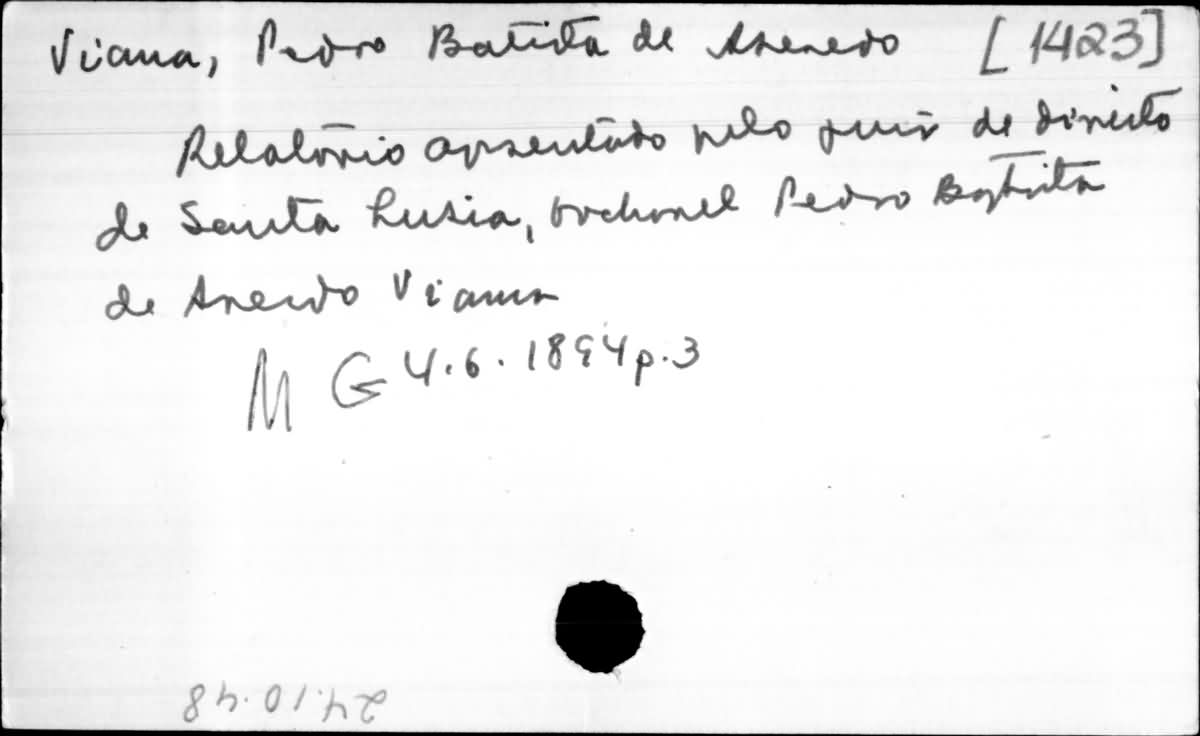 Viana, Pedro Batista de Azevedo [1423]
Relatório apresentado pelo juiz de direito
de Santa Luzia, bacharel Pedro Baptista
de Azevedo Viana
M G 4.6.1894 p.3
24.10.48